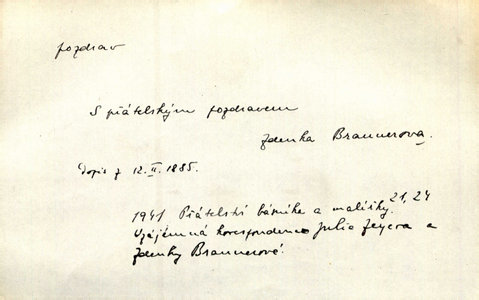 pozdrav
S přátelským pozdravem
Zdenka Braunerova.
Dopis z 12. II. 1885.
1941 Přátelství básníka a malířky. 21, 24
Vzájemná korespondence Julia Zeyera a
Zdenky Braunerové.